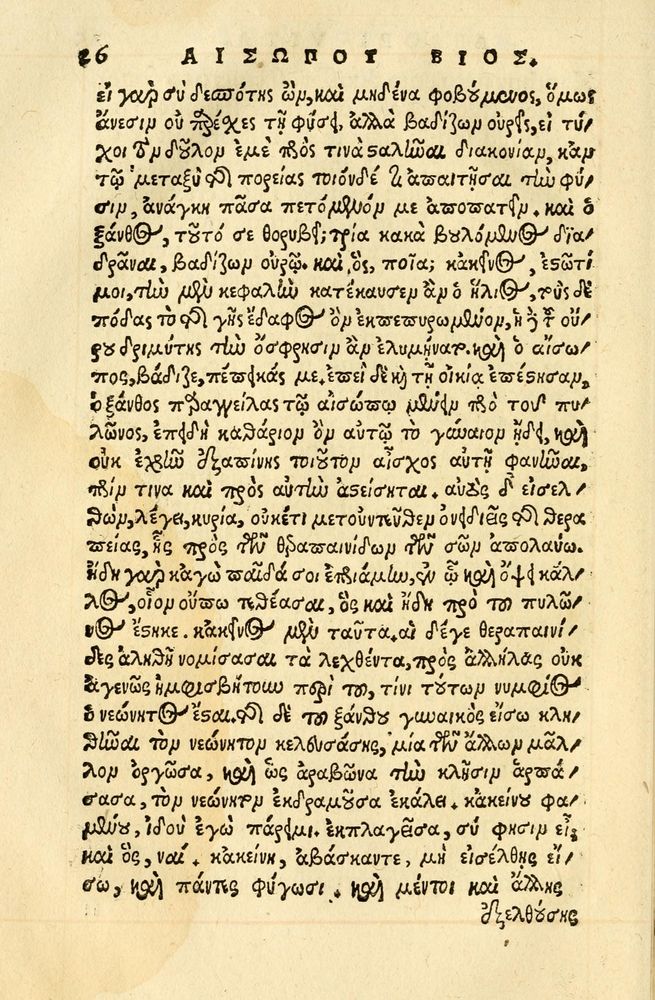 26 ΑΙΣΩΠΟΥ ΒΙΟΣ.
εἰ γὰρ σὺ δεσπότης ὢν, καὶ μηδένα φοβούμενος, ὅμως
ἄνεσιν οὐ παρέχεις τῇ φύσει, ἀλλὰ βαδίζων οὐρεῖς, εἰ τύ-
χοι τὸν δοῦλον ἐμὲ πρός τινα σταλῆναι διακονίαν, κἀν
τῷ μεταξὺ τῆς πορείας τοιόνδε τι ἀπαιτῆσαι τὴν φύ-
σιν, ἀνάγκη πᾶσα πετόμενόν με ἀποπατεῖν. καὶ ὁ
ξάνθος, τοῦτό σε θορυβεῖ; τρία κακὰ βουλόμενος δια-
δρᾶναι, βαδίζων οὐρῶ. καὶ ὃς, ποῖα; κἀκεῖνος, ἑστῶτι
μοι, τὴν μὲν κεφαλὴν κατέκαυσεν ἂν ὁ ἥλιος, τοὺς δὲ
πόδας τὸ τῆς γῆς ἔδαφος ὂν ἐκπεπυρωμένον, ἡ δὲ τοῦ οὔ-
ρου δριμύτης τὴν ὄσφρησιν ἂν ἐλυμήνατο. καὶ ὁ αἴσω-
πος, βάδιζε, πέπεικάς με. ἐπεὶ δὲ καὶ τῇ οἰκίᾳ ἐπέστησαν,
ὁ ξάνθος παραγγείλας τῷ αἰσώπῳ μένειν πρὸ τοῦ πυ-
λῶνος, ἐπειδὴ καθάριον ὂν αὐτῷ τὸ γύναιον ᾔδει, καὶ
οὐκ ἐχρῆν ἐξαπίνης τοιοῦτον αἶσχος αὐτῇ φανῆναι,
πρίν τινα καὶ πρὸς αὐτὴν ἀστείσηται. αὐτὸς δ' εἰσελ-
θὼν, λέγει, κυρία, οὐκέτι μετοῦντεῦθεν ὀνειδιεῖς τῆς θερα
πείας, ἧς πρὸς τῶν θεραπαινίδων τῶν σῶν ἀπολαύω.
ἤδη γὰρ κἀγὼ παῖδά σοι ἐπριάμην, ἐν ᾧ καὶ ὄψει κάλ-
λος, οἷον οὔπω τεθέασαι, ὃς καὶ ἤδη πρὸ τοῦ πυλῶ-
νος ἕστηκε. κἀκεῖνος μὲν ταῦτα. αἱ δέγε θεραπαινί-
δες ἀληθῆ νομίσασαι τὰ λεχθέντα, πρὸς ἀλλήλας οὐκ
ἀγενῶς ἠμφισβήτουν περὶ τοῦ, τίνι τούτων νυμφίος
ὁ νεώνητος ἔσται. τῆς δὲ τοῦ ξάνθου γυναικὸς εἴσω κλη-
θῆναι τὸν νεώνητον κελευσάσης, μία τῶν ἄλλων μᾶλ-
λον ὀργῶσα, καὶ ὡς ἀραβῶνα τὴν κλῆσιν ἁρπά-
σασα, τὸν νεώνητον ἐκδραμοῦσα ἐκάλει. κἀκείνου φα-
μένου, ἰδοὺ ἐγὼ πάρειμι. ἐκπλαγεῖσα, σύ φησιν εἶ;
καὶ ὃς, ναί. κἀκείνη, ἀβάσκαντε, μὴ εἰσέλθῃς εἴ-
σω, καὶ πάντες φύγωσι. καὶ μέντοι καὶ ἄλλης
ἐξελθούσης